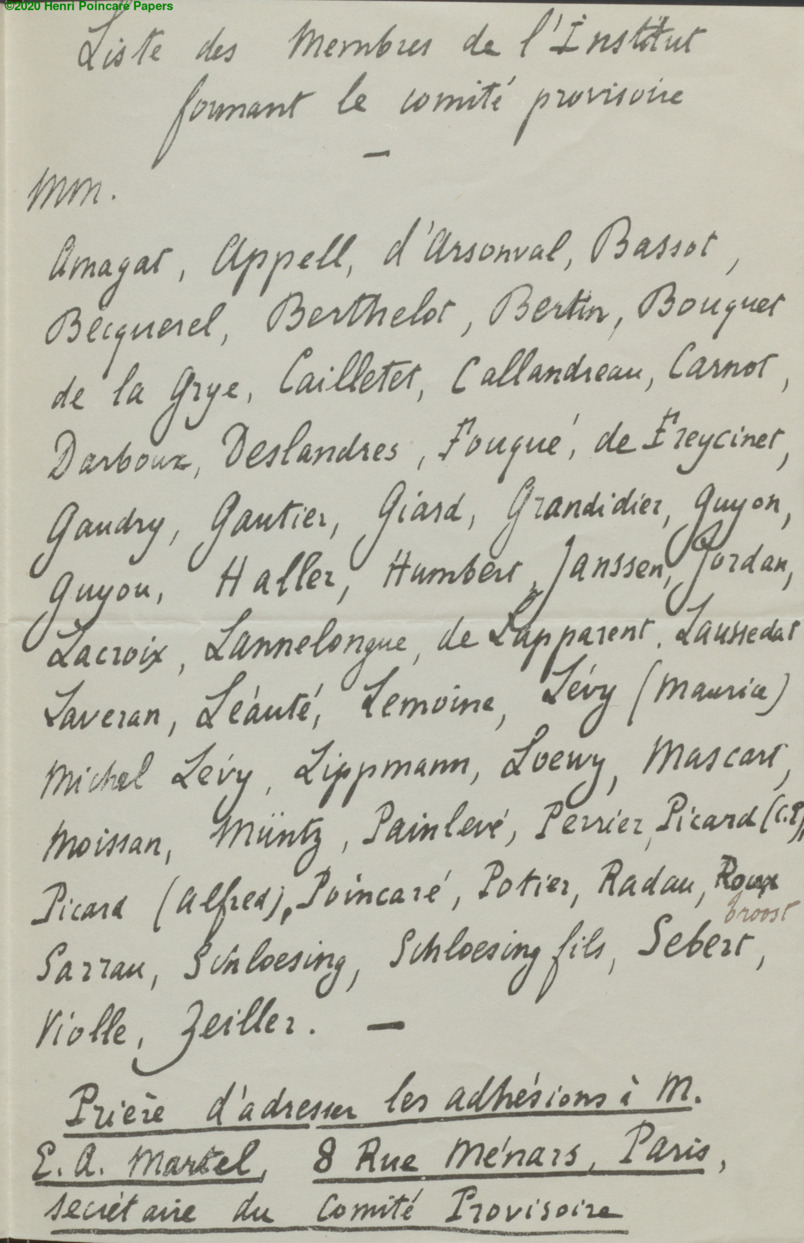 ©2020 Henri Poincaré Papers
Liste des Membres de l'Institut
formant le comité provisoire
—
MM.
Amagat, Appell, d'Arsonval, Bassot,
Becquerel, Berthelot, Bertin, Bouquet
de la Grye, Cailletet, Callandreau, Carnot,
Darboux, Deslandres, Fouqué, de Freycinet,
Gaudry, Gautier, Giard, Grandidier, Guyon,
Guyou, Haller, Humbert, Janssen, Jordan,
Lacroix, Lannelongue, de Lapparent, Laussedat
Laveran, Léauté, Lemoine, Lévy (Maurice)
Michel Lévy, Lippmann, Loewy, Mascart,
Moissan, Müntz, Painlevé, Perrier, Picard (C.P),
Picard (Alfred), Poincaré, Potier, Radau, Roux
Sarrau, Schloesing, Schloesing fils, Sebert,
Violle, Zeiller. —
Prière d'adresser les adhésions à M.
E. A. Martel, 8 Rue Ménars, Paris,
secrétaire du Comité Provisoire